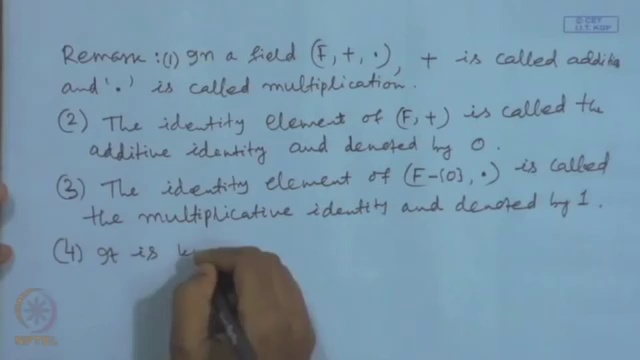 © CET
I.I.T. KGP
Remark: (1) In a field (F, +, ·), + is called additio
and '·' is called multiplication.
(2) The identity element of (F, +) is called the
additive identity and denoted by 0.
(3) The identity element of (F-{0}, ·) is called
the multiplicative identity and denoted by 1.
(4) It is k
NPTEL